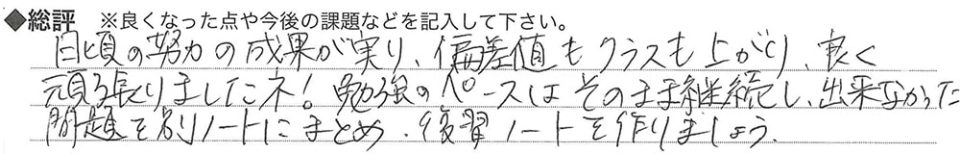 ◆総評 ※良くなった点や今後の課題などを記入して下さい。
日頃の努力の成果が実り、偏差値もクラスも上がり、良く
頑張りましたネ!勉強のペースはそのまま継続し、出来なかった
問題を別ノートにまとめ、復習ノートを作りましょう。